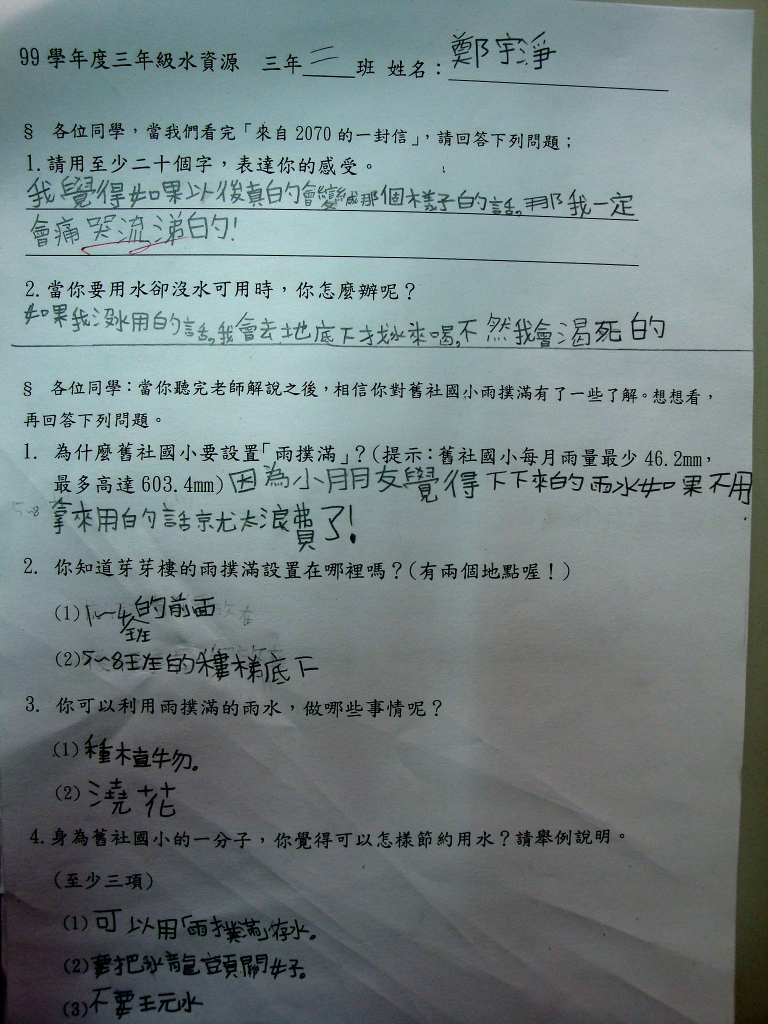 99 學年度三年級水資源 三年二班 姓名：鄭宇淨
§ 各位同學，當我們看完「來自 2070 的一封信」，請回答下列問題；
1. 請用至少二十個字，表達你的感受。
我覺得如果以後真的會變成那個樣子的話，那我一定
會痛哭流涕的！
2. 當你要用水卻沒水可用時，你怎麼辦呢？
如果我沒水用的話，我會去地底下找水來喝，不然我會渴死的
§ 各位同學：當你聽完老師解說之後，相信你對舊社國小雨撲滿有了一些了解。想想看，
再回答下列問題。
1. 為什麼舊社國小要設置「雨撲滿」？(提示：舊社國小每月雨量最少 46.2mm，
最多高達 603.4mm) 因為小朋友覺得下下來的雨水如果不用
5-8 拿來用的話就太浪費了！
2. 你知道芽芽樓的雨撲滿設置在哪裡嗎？(有兩個地點喔！)
(1) 1~4班的前面
(2) 5~8班的樓梯底下
3. 你可以利用雨撲滿的雨水，做哪些事情呢？
(1) 種植物。
(2) 澆花
4. 身為舊社國小的一分子，你覺得可以怎樣節約用水？請舉例說明。
(至少三項)
(1) 可以用「雨撲滿」存水。
(2) 要把水龍頭關好。
(3) 不要玩水